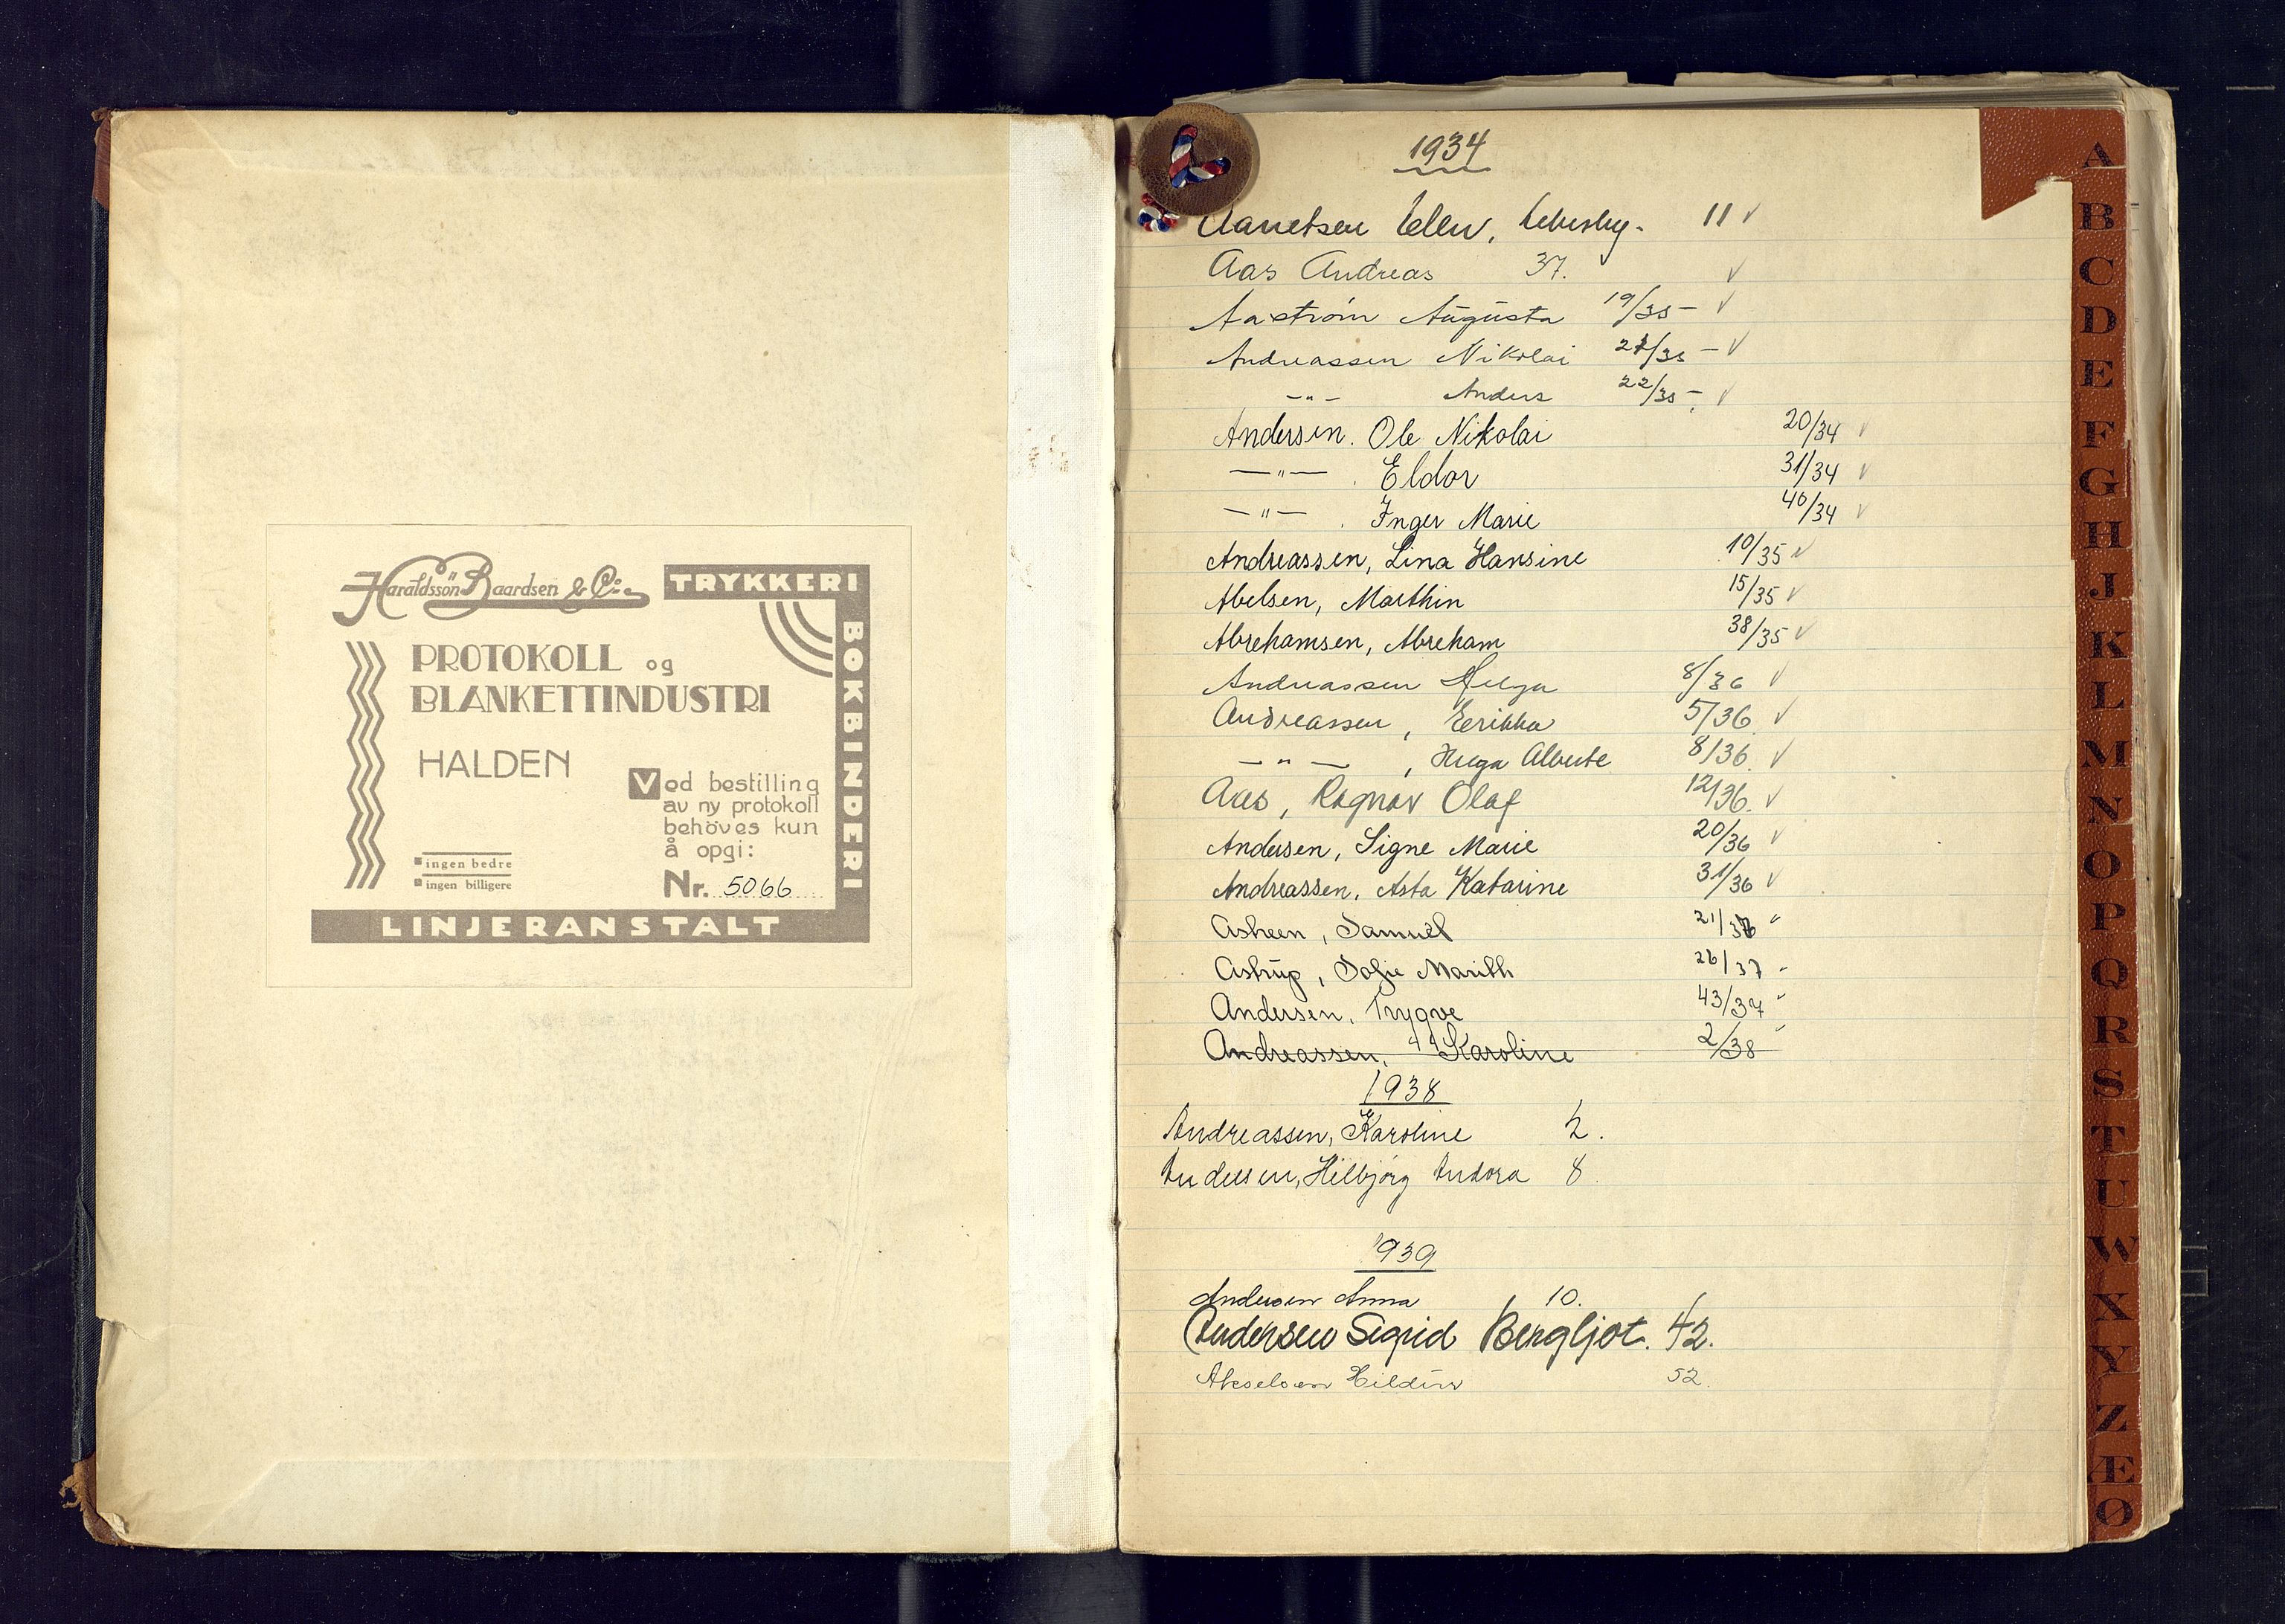 Haraldssön Baardsen & Co.
TRYKKERI
BOKBINDERI
PROTOKOLL og
BLANKETTINDUSTRI
HALDEN
Ved bestilling
av ny protokoll
behöves kun
å opgi:
Nr. 5066
ingen bedre
ingen billigere
LINJERANSTALT
1934
Aanetsen Elen, Lebesby. 11 √
Aas Andreas 37. √
Aaström Augusta 19/35 - √
Andreassen Nikolai 21/35 - √
-"- Anders 22/35 -, √
Andersen. Ole Nikolai 20/34 √
-"- . Eldor 31/34 √
-"- . Inger Marie 40/34 √
Andreassen, Lina Hansine 10/35 √
Abelsen, Marthin 15/35 √
Abrehamsen, Abreham 38/35 √
Andreassen Helga 8/36 √
Andreassen, Eerikka 5/36. √
-"-, Helga Alberte 8/36. √
Aas, Ragnar Olaf 12/36. √
Andersen, Signe Marie 20/36 √
Andreassen, Asta Katarine 31/36 √
Asheen, Samuel 21/36 √
Astrup, Sofie Marith 26/37 -
Andersen, Trygve 43/37 √
Andreassen, Karoline 2/38 √
1938
Andreassen, Karoline 2.
Andersen, Hilbjørg Andora 8.
1939
Andersen Anna 10.
Andersen Sigrid Bergljot. 42.
Akselsen Hildur 52.
A
B
C
D
E
F
G
H
J
K
L
M
N
O
P
Q
R
S
T
U
W
X
Y
Z
Æ
Ø